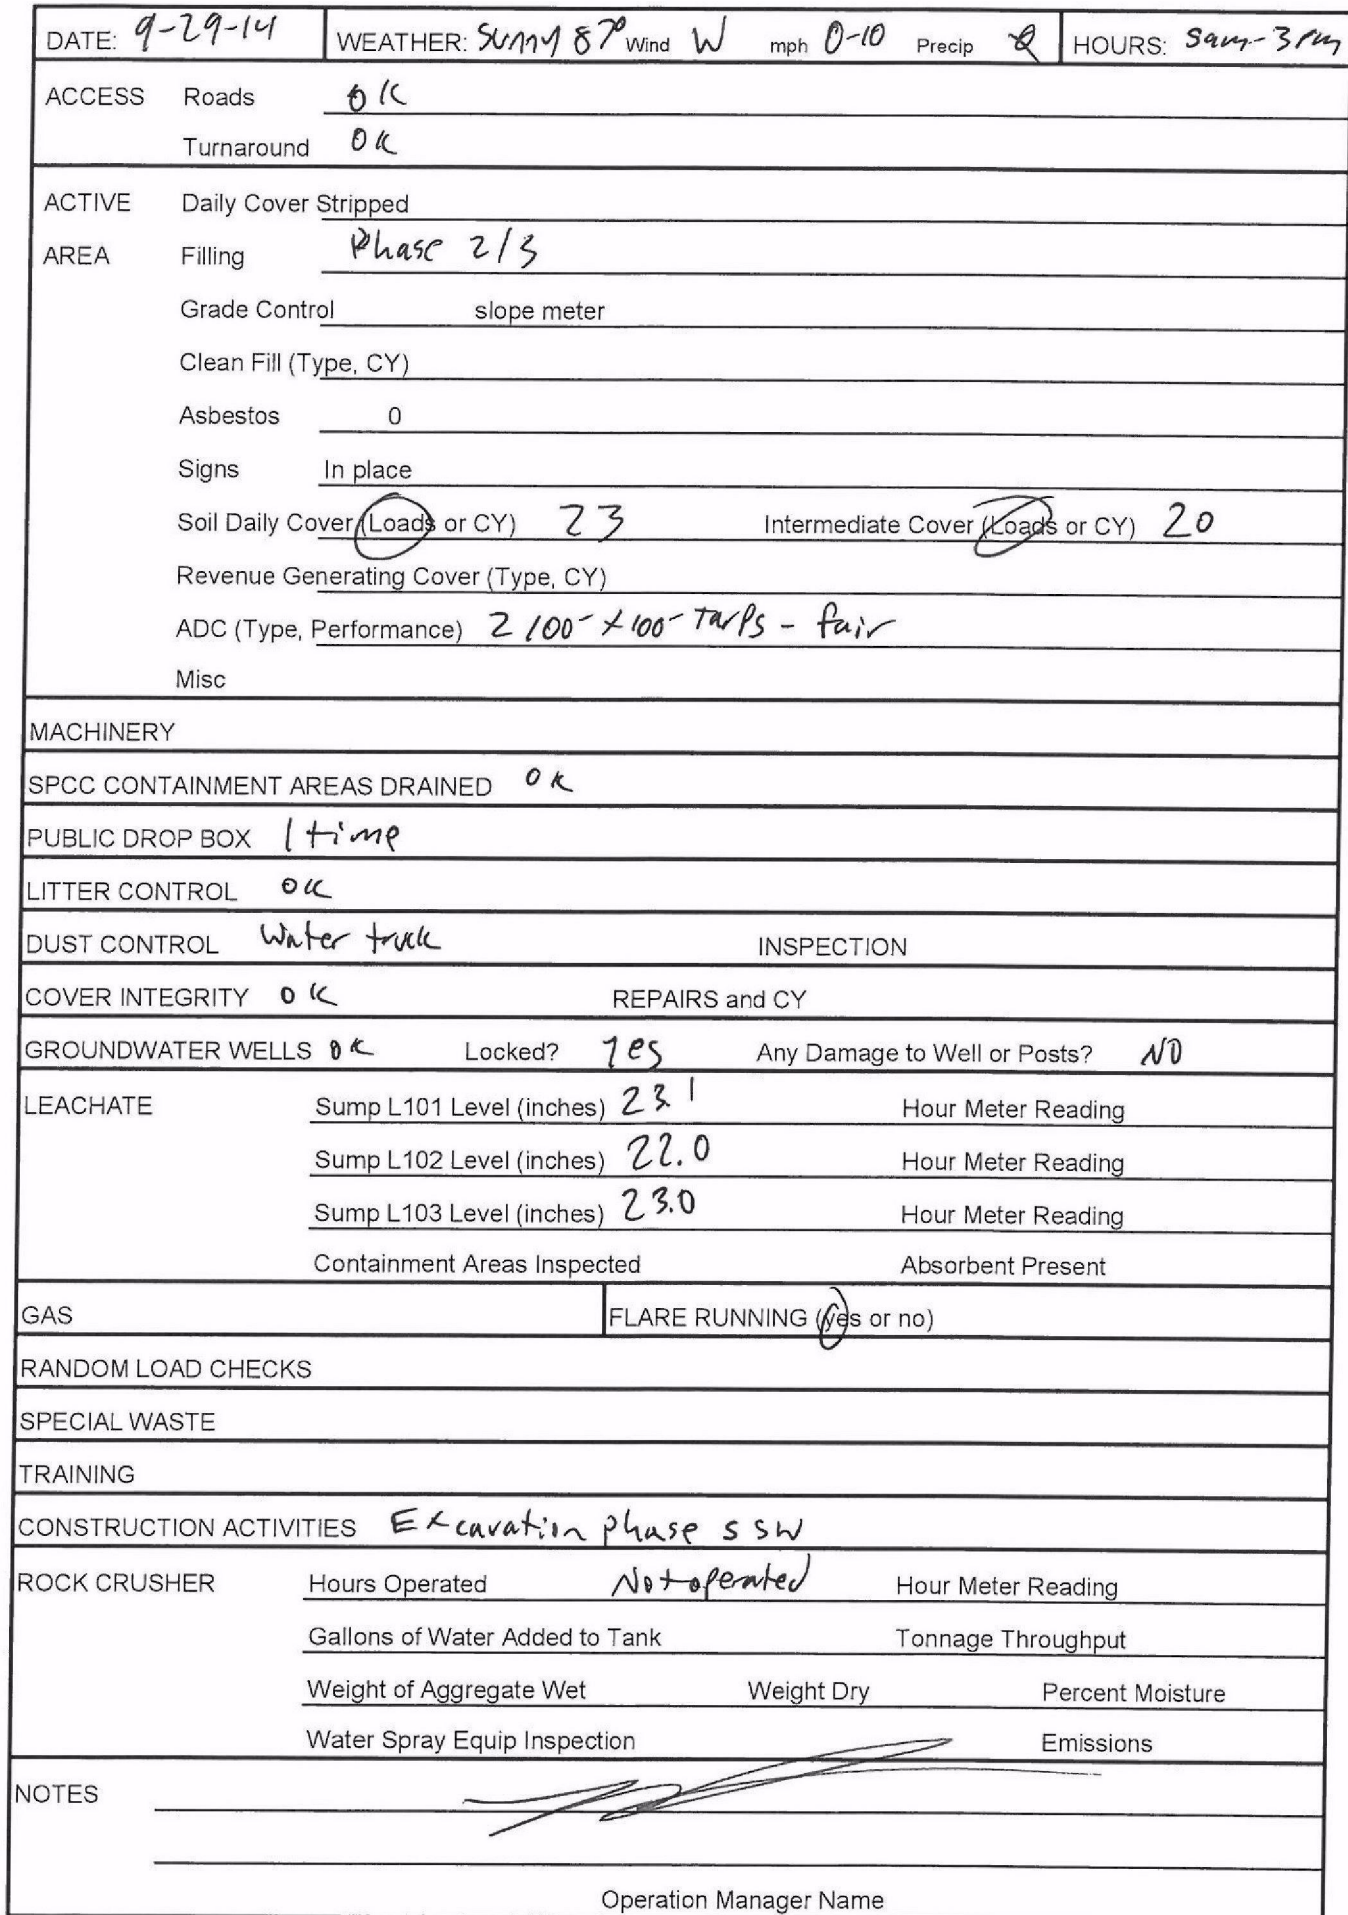 DATE: 9-29-14 WEATHER: Sunny 87° Wind W mph 0-10 Precip 0 HOURS: 5am-3pm
ACCESS Roads OK
Turnaround OK
ACTIVE Daily Cover Stripped
AREA Filling Phase 2/3
Grade Control slope meter
Clean Fill (Type, CY)
Asbestos 0
Signs In place
Soil Daily Cover (Loads or CY) 23 Intermediate Cover (Loads or CY) 20
Revenue Generating Cover (Type, CY)
ADC (Type, Performance) 2 100- x 100- Tarps - fair
Misc
MACHINERY
SPCC CONTAINMENT AREAS DRAINED OK
PUBLIC DROP BOX 1 time
LITTER CONTROL OK
DUST CONTROL Water truck INSPECTION
COVER INTEGRITY OK REPAIRS and CY
GROUNDWATER WELLS OK Locked? Yes Any Damage to Well or Posts? NO
LEACHATE Sump L101 Level (inches) 23.1 Hour Meter Reading
Sump L102 Level (inches) 22.0 Hour Meter Reading
Sump L103 Level (inches) 23.0 Hour Meter Reading
Containment Areas Inspected Absorbent Present
GAS FLARE RUNNING (yes or no)
RANDOM LOAD CHECKS
SPECIAL WASTE
TRAINING
CONSTRUCTION ACTIVITIES Excavation phase 5 SW
ROCK CRUSHER Hours Operated Not operated Hour Meter Reading
Gallons of Water Added to Tank Tonnage Throughput
Weight of Aggregate Wet Weight Dry Percent Moisture
Water Spray Equip Inspection Emissions
NOTES
Operation Manager Name